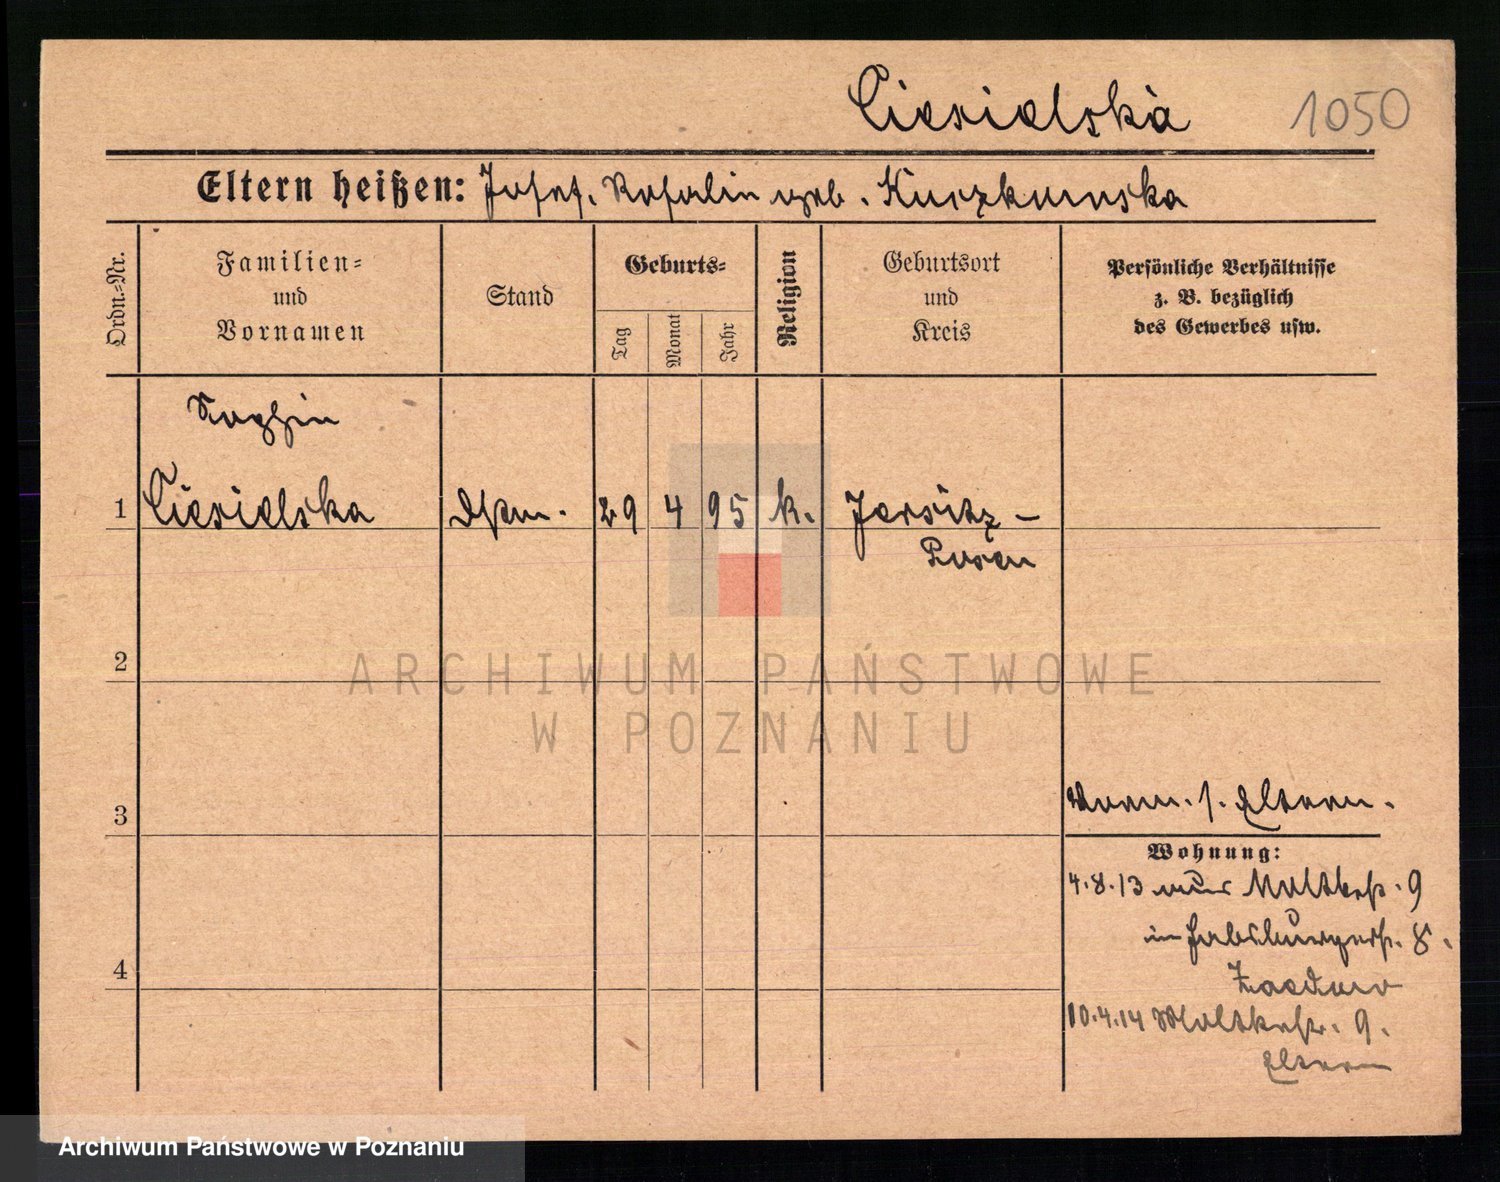 Ciesielska 1050
Eltern heißen: Josef. Rosalin geb. Kuczkumska
Ordn.-Nr.
Familien-
und
Vornamen
Stand
Geburts-
Tag
Monat
Jahr
Religion
Geburtsort
und
Kreis
Persönliche Verhältnisse
z. B. bezüglich
des Gewerbes usw.
1 Ciesielska 29 4 95 k. Jersitz –
Posen
2
ARCHIWUM PAŃSTWOWE
W POZNANIU
3 Vorm. s. Eltern.
Wohnung:
4.8.13 Moltkestr. 9
in Habsburgerstr. 8.
4
10.4.14 Moltkestr. 9.
Eltern
Archiwum Państwowe w Poznaniu